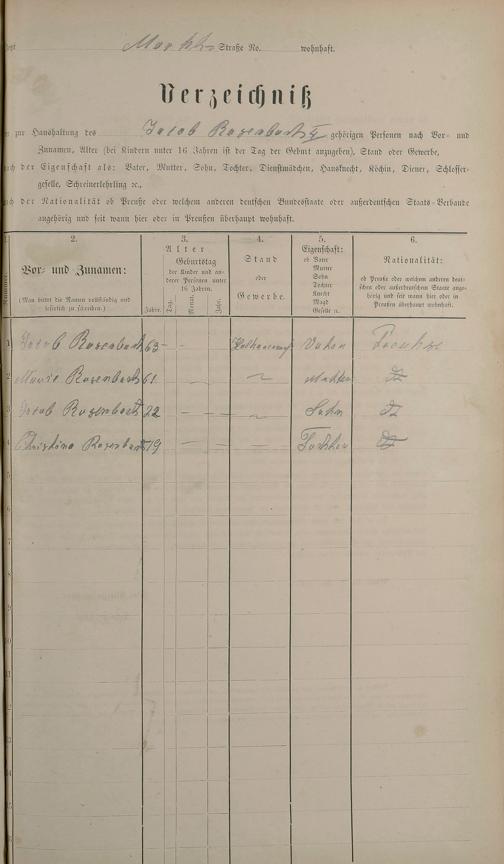 Straße No. wohnhaft.
Verzeichniß
zur Haushaltung des Jacob Rosenbach II gehörigen Personen nach Vor- und
Zunamen, Alter (bei Kindern unter 16 Jahren ist der Tag der Geburt anzugeben), Stand oder Gewerbe,
nach der Eigenschaft als: Vater, Mutter, Sohn, Tochter, Dienstmädchen, Hausknecht, Köchin, Diener, Schlosser-
geselle, Schreinerlehrling ꝛc.,
nach der Nationalität ob Preuße oder welchem anderen deutschen Bundesstaate oder außerdeutschen Staats-Verbande
angehörig und seit wann hier oder in Preußen überhaupt wohnhaft.
2. 3. 4. 5. 6.
Vor- und Zunamen:
(Man bittet die Namen vollständig und
leserlich zu schreiben.)
Alter
Jahre.
Geburtstag
der Kinder und an-
derer Personen unter
16 Jahren.
Tag. Monat. Jahr.
Stand
oder
Gewerbe.
Eigenschaft:
ob Vater
Mutter
Sohn
Tochter
Knecht
Magd
Geselle ꝛc.
Nationalität:
ob Preuße oder welchem anderen deut-
schen oder außerdeutschen Staate ange-
hörig und seit wann hier oder in
Preußen überhaupt wohnhaft.
1 Jacob Rosenbach 63 — — Vater Preuße
2 Rosenbach 61 — — — ~ Mutter do
3 Jacob Rosenbach 22 — — — ~ Sohn do
4 Christina Rosenbach 19 — — — — Tochter do